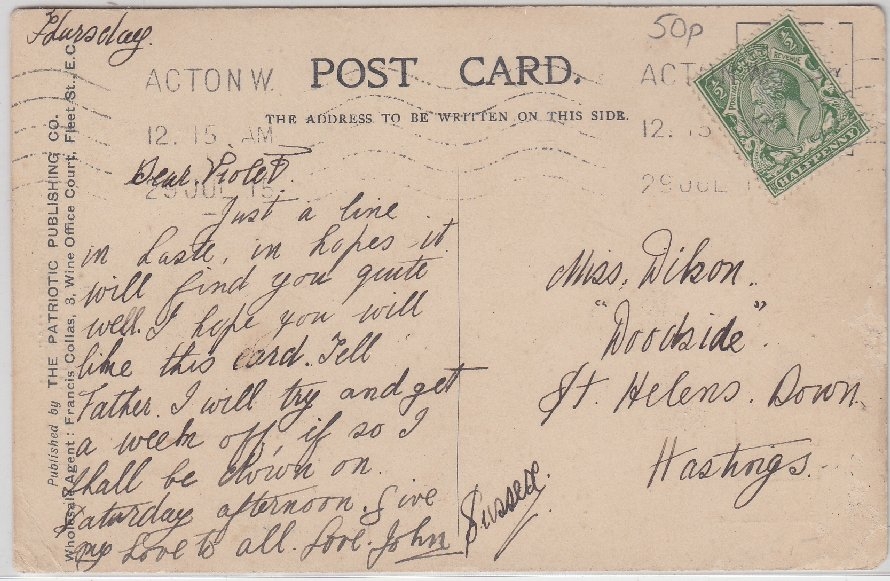 Thursday.
50p
ACTON W.
12. 15 AM
29 JUL 15
POST CARD.
THE ADDRESS TO BE WRITTEN ON THIS SIDE.
ACT
12. 15
29 JUL 1
½
REVENUE
½
HALFPENNY
Published by THE PATRIOTIC PUBLISHING CO.
Wholesale Agent: Francis Collas, 3, Wine Office Court, Fleet St., E.C.
Dear Violet.
Just a line
in haste, in hopes it
will find you quite
well. I hope you will
like this card. Tell
Father. I will try and get
a week off, if so I
shall be down on
Saturday afternoon. Give
my love to all. Love. John
Miss. Dixon.
"Woodside".
St. Helens. Down.
Hastings.
Sussex.